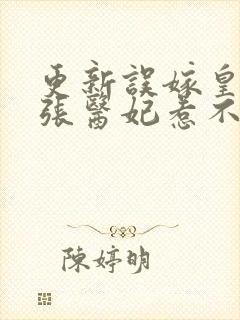 更新誤嫁皇
張醫妃惹不
陳婷明